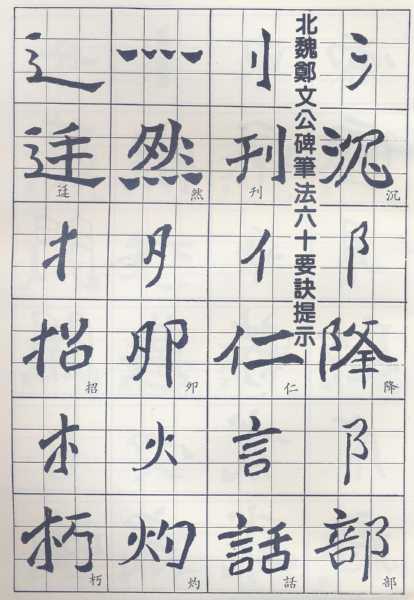 北魏鄭文公碑筆法六十要訣提示
氵
沉 沉
阝
降 降
阝
部 部
刂
刊 刊
亻
仁 仁
言
話 話
灬
然 然
卯 卯
火
灼 灼
辶
扌
招 招
木
朽 朽